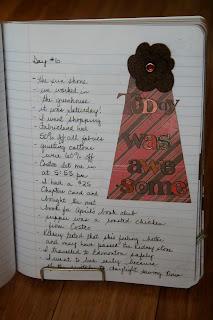 Day #6
- the sun shone
- we worked in
the greenhouse
- it was Saturday!
- I went shopping
- Fabricland had
50% off all fabrics
- quilting cottons
were 60% off
- Costco let me in
at 5:55 pm
- I had a $25
Chapters card and
bought the next
book for April's book club
- supper was a roasted chicken
from Costco
- Kelsey texted that she's feeling better
and may have passed the kidney stone
- I traveled to Edmonton safely
- I went to bed early because
daylight saving time
Today
was
awe
some